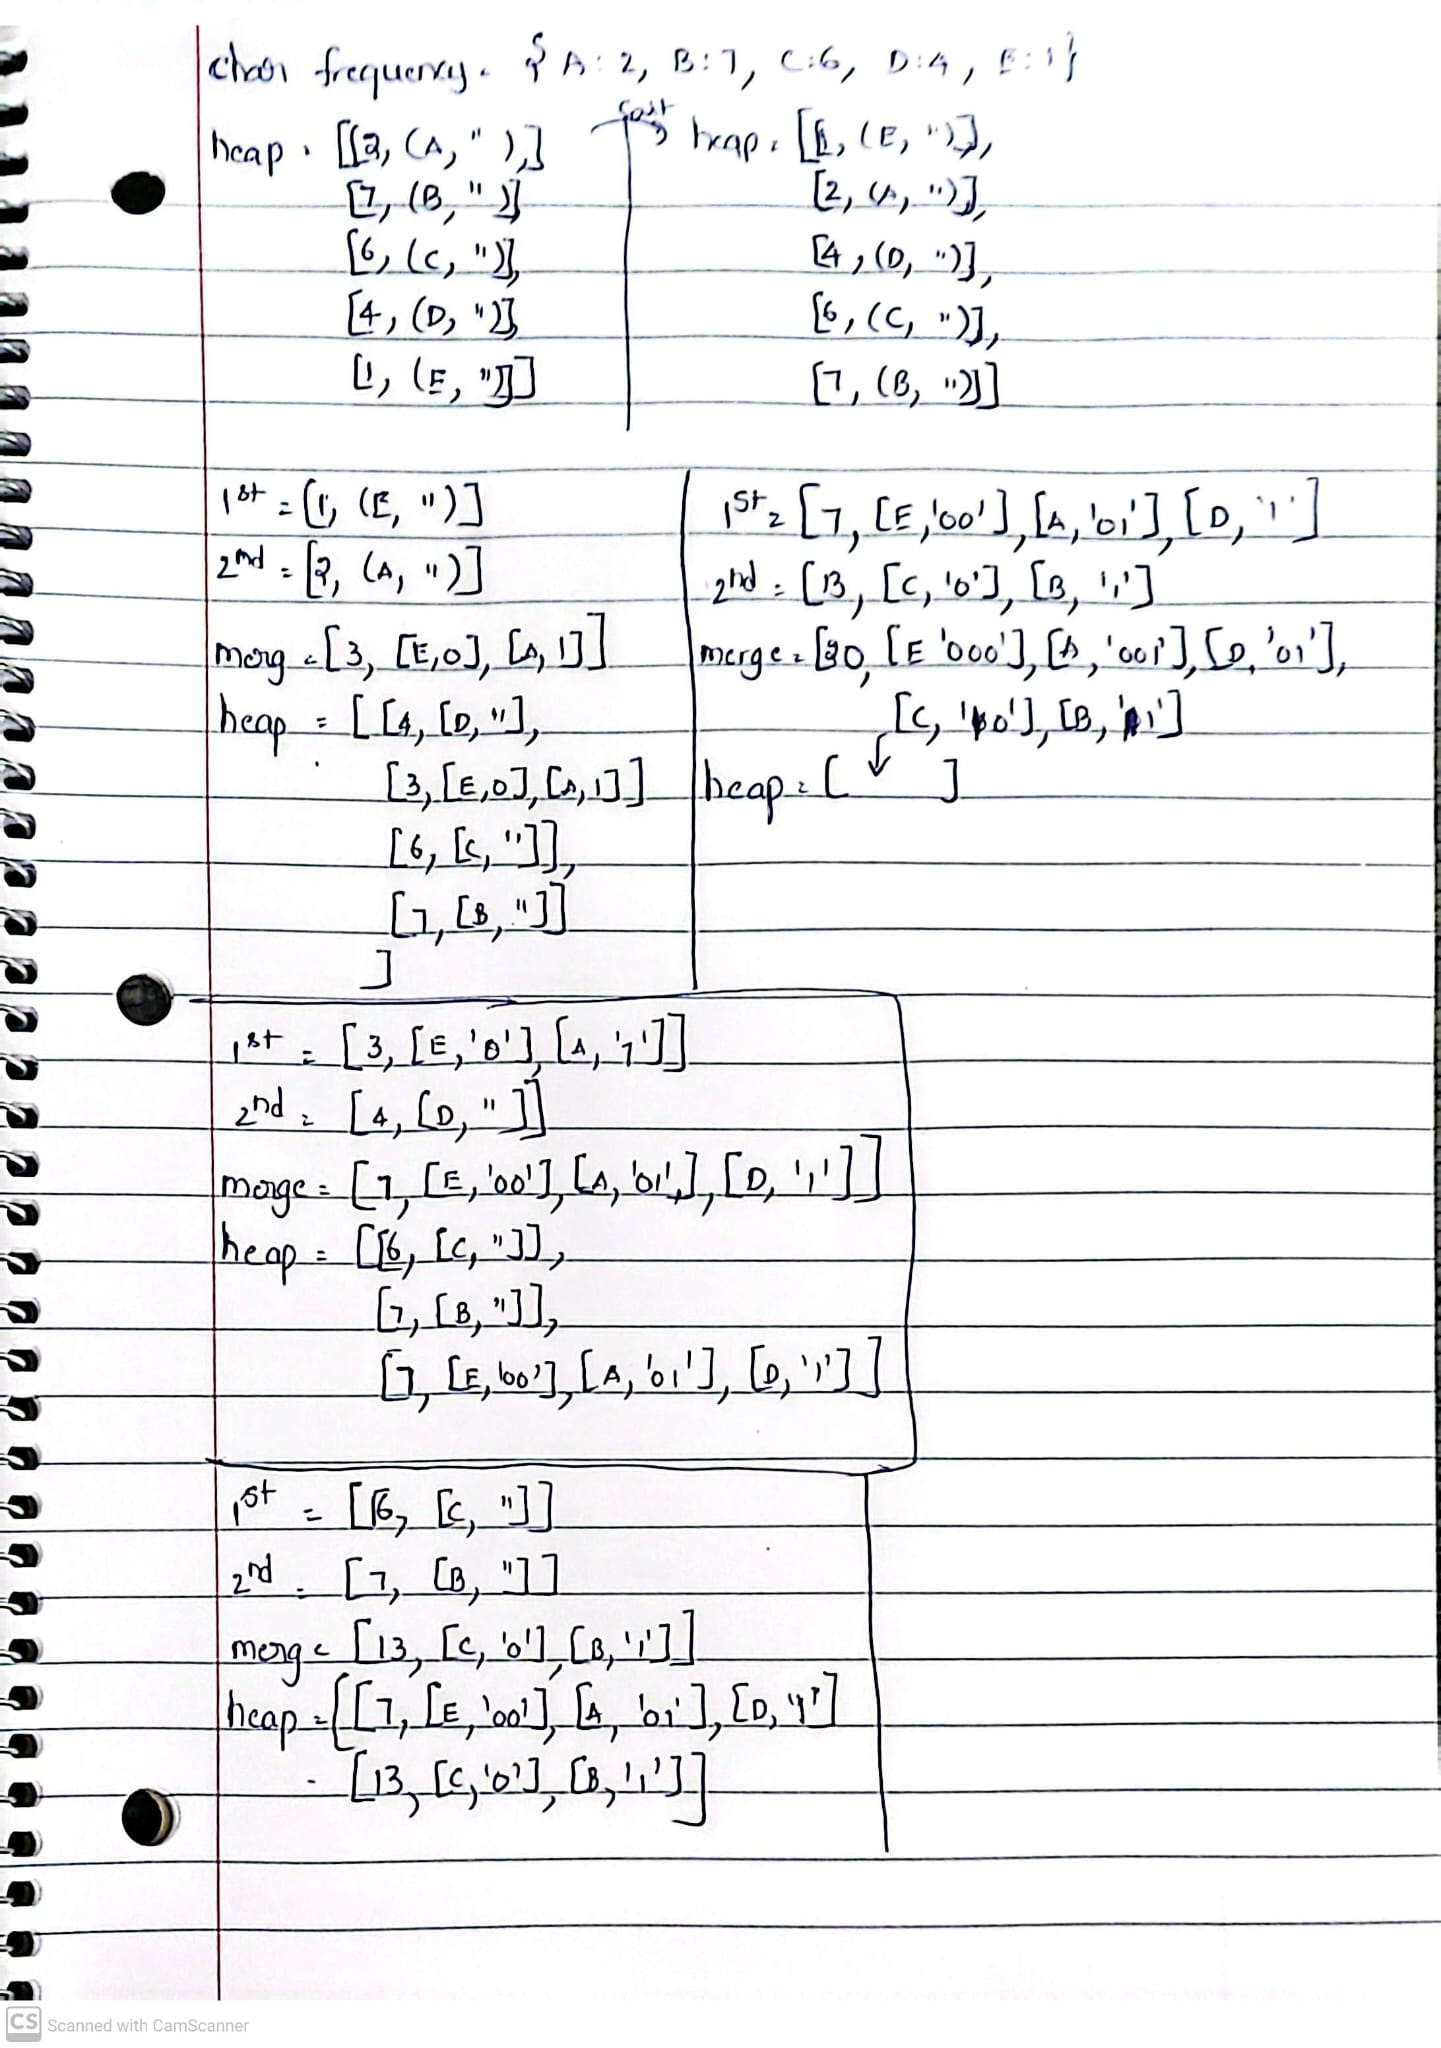 char frequency = { A: 2, B: 7, C:6, D:4, E:1}
heap = [[2, (A, " ),]
[7, (B, " )]
[6, (C, ")],
[4, (D, ")],
[1, (E, ")]]
heap = [[1, (E, '')],
[2, (A, '')],
[4, (D, '')],
[6, (C, '')],
[7, (B, '')]]
1st = [1, (E, '')]
2nd = [2, (A, '')]
merg = [3, [E,0], [A,1]]
heap = [ [4, [D, ''],
[3, [E,0], [A,1]]
[6, [C, '']],
[7, [B, '']]
]
1st = [7, [E,'00'], [A,'01'], [D, '1']
2nd = [13, [C, '0'], [B, '1']
merge = [20, [E '000'], [A, '001'], [D, '01'],
[C, '10'], [B, '11']
heap = [ ↓ ]
1st = [3, [E,'0'], [A,'1']]
2nd = [4, [D, '']]
merge = [7, [E,'00'], [A,'01',], [D, '1']]
heap = [[6, [C, '']],
[7, [B, '']],
[7, [E,'00'], [A,'01'], [D, '1']]
1st = [[6, [C, '']]
2nd = [7, [B, '']]
merge = [13, [C, '0'], [B, '1']]
heap = [[7, [E,'00'], [A, '01'], [D, '1']
[13, [C,'0'], [B,'1']]
CS Scanned with CamScanner